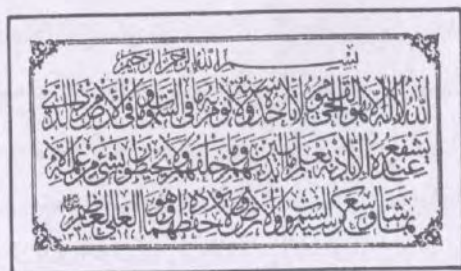 بسم الله الرحمن الرحيم
الله لا إله إلا هو الحي القيوم لا تأخذه سنة ولا نوم له ما في السموات وما في الأرض من ذا الذي
يشفع عنده إلا بإذنه يعلم ما بين أيديهم وما خلفهم ولا يحيطون بشيء من علمه إلا
بما شاء وسع كرسيه السموات والأرض ولا يؤده حفظهما وهو العلي العظيم